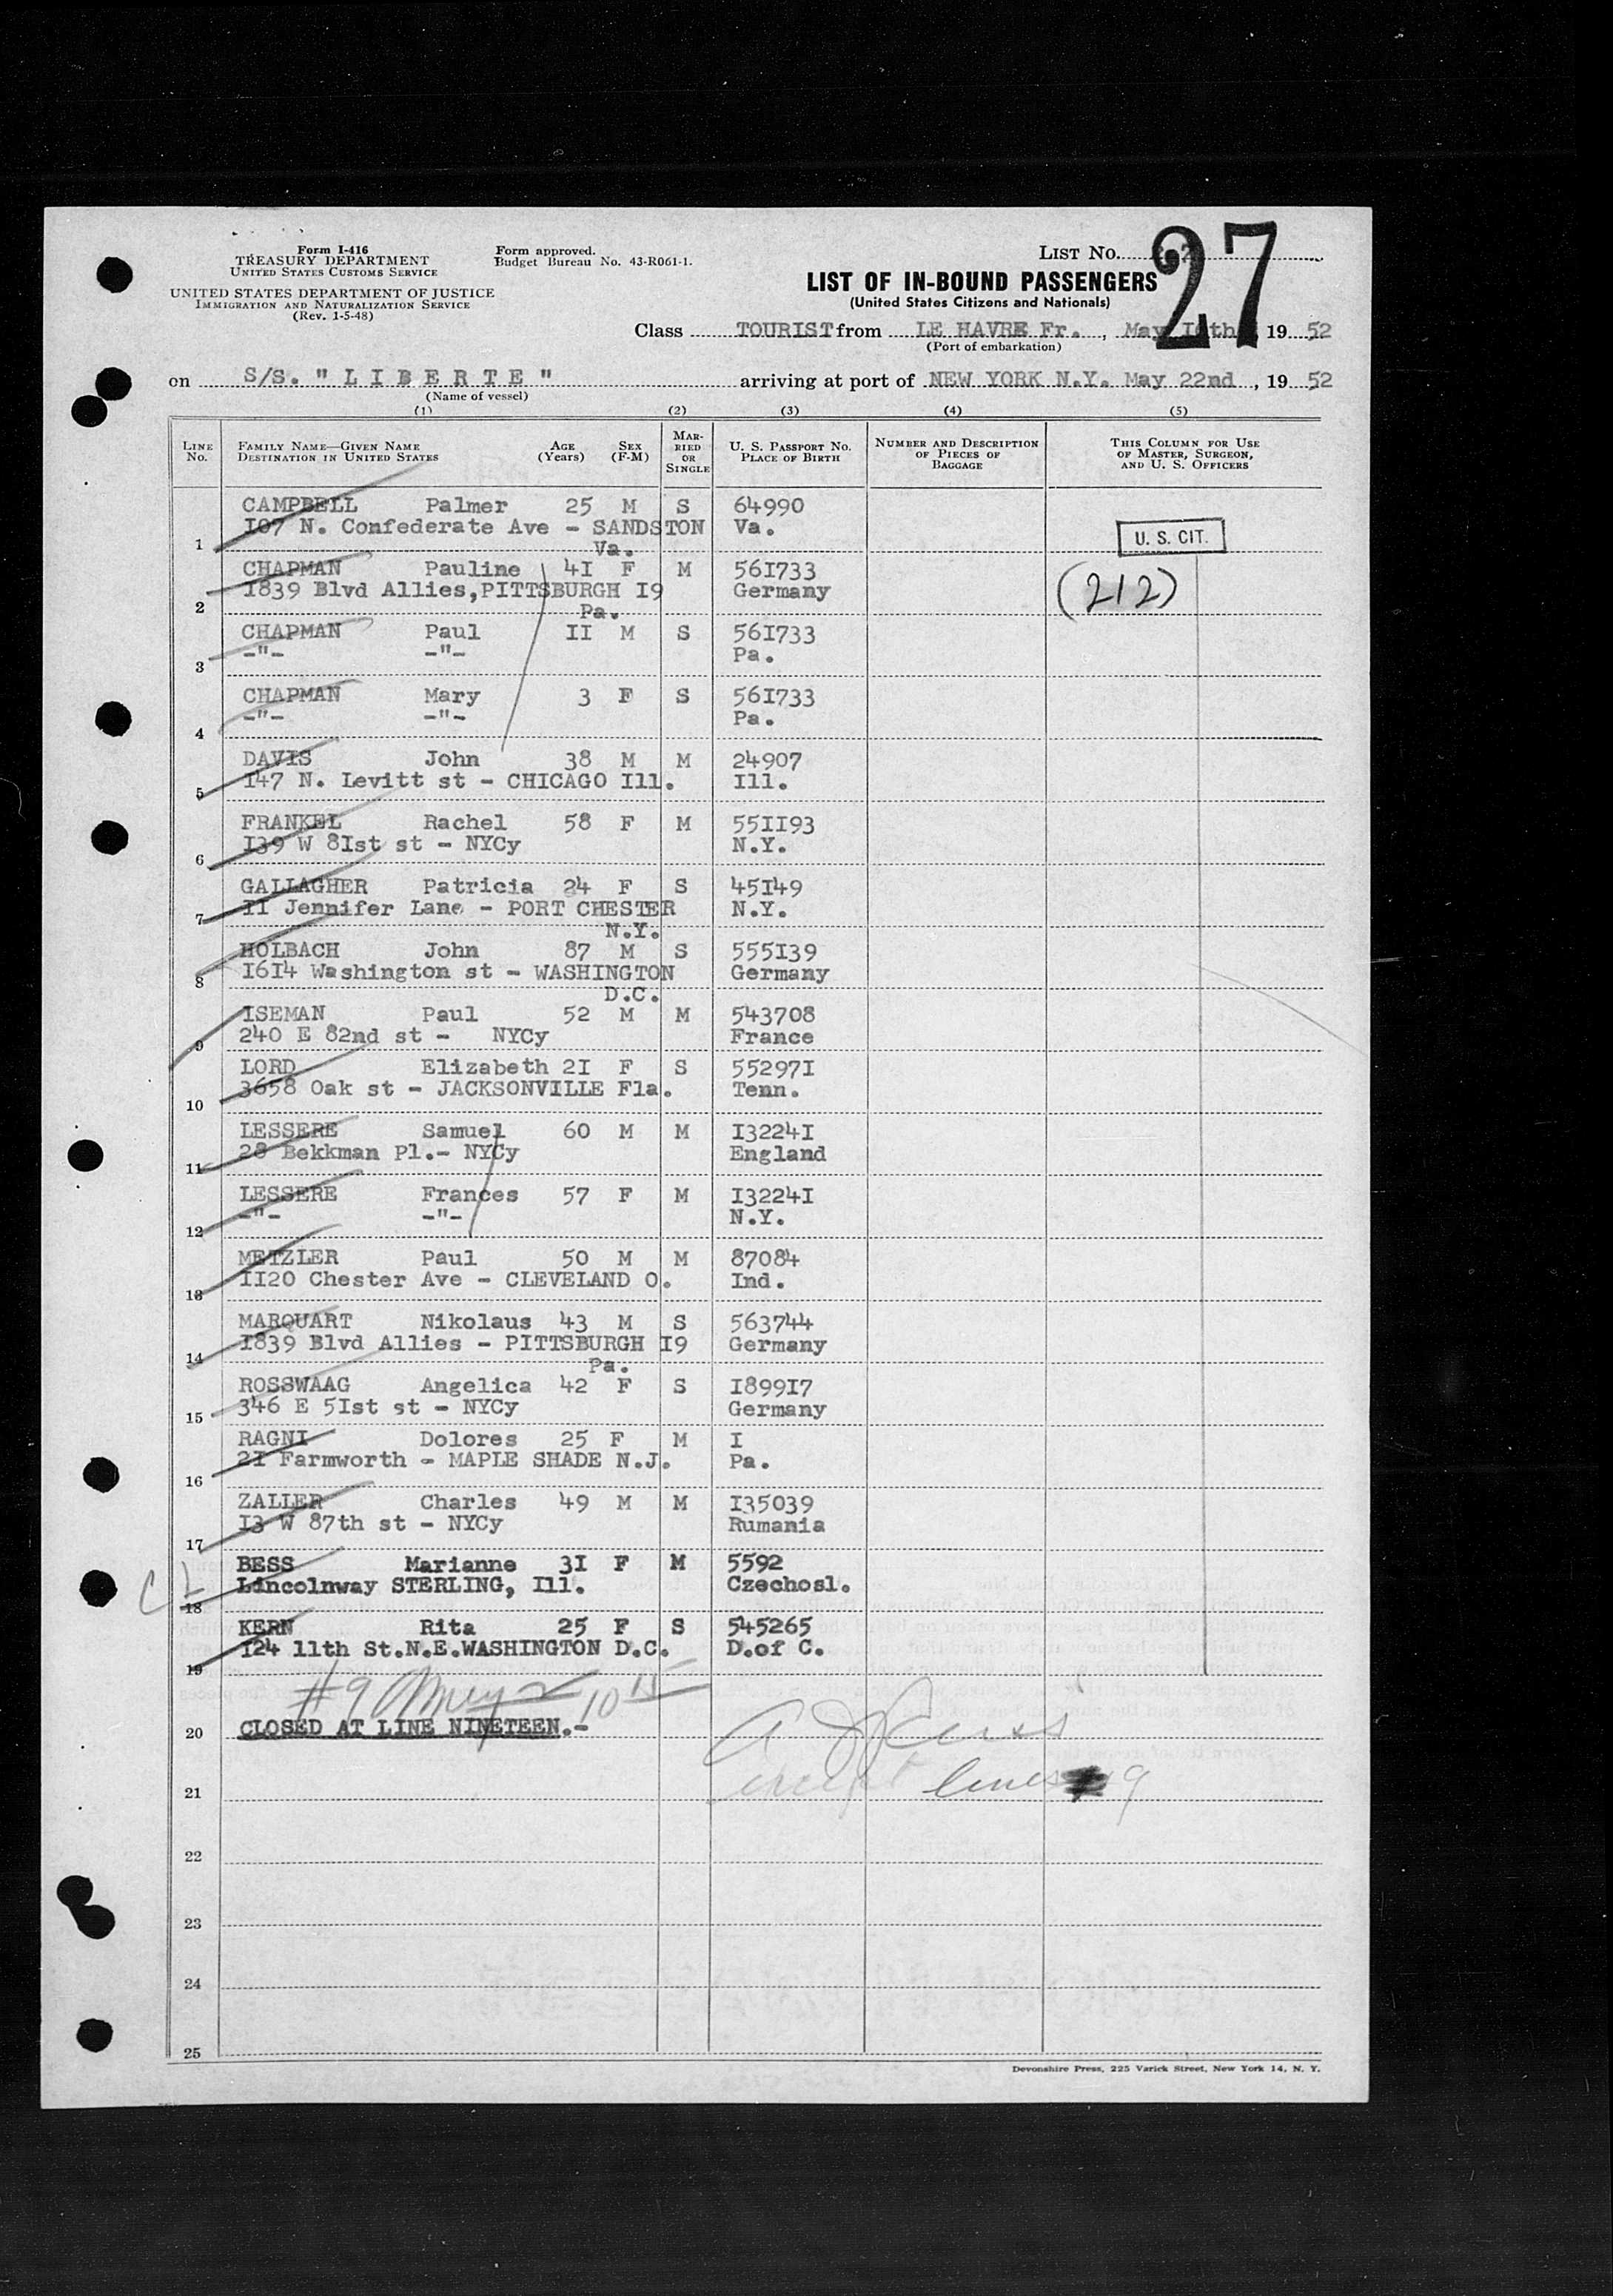 Form I-416
TREASURY DEPARTMENT
UNITED STATES CUSTOMS SERVICE
UNITED STATES DEPARTMENT OF JUSTICE
IMMIGRATION AND NATURALIZATION SERVICE
(Rev. 1-5-48)
Form approved.
Budget Bureau No. 43-R061-1.
LIST NO.
27
LIST OF IN-BOUND PASSENGERS
(United States Citizens and Nationals)
Class TOURIST from LE HAVRE Fr., May 16th 19 52
(Port of embarkation)
on S/S. "LIBERTE" arriving at port of NEW YORK N.Y. May 22nd, 19 52
(Name of vessel)
(1) (2) (3) (4) (5)
LINE NO. FAMILY NAME—GIVEN NAME DESTINATION IN UNITED STATES AGE (Years) SEX (F-M) MARRIED OR SINGLE U. S. PASSPORT NO. PLACE OF BIRTH NUMBER AND DESCRIPTION OF PIECES OF BAGGAGE THIS COLUMN FOR USE OF MASTER, SURGEON, AND U. S. OFFICERS
CAMPBELL Palmer 25 M S 64990
107 N. Confederate Ave - SANDSTON Va.
1 Va.
U. S. CIT.
CHAPMAN Pauline 4I F M 56I733
I839 Blvd Allies,PITTSBURGH I9 Germany
2 Pa.
(212)
CHAPMAN Paul II M S 56I733
-"- -"- Pa.
3
CHAPMAN Mary 3 F S 56I733
-"- -"- Pa.
4
DAVIS John 38 M M 24907
I47 N. Levitt st - CHICAGO Ill. Ill.
5
FRANKEL Rachel 58 F M 55II93
I39 W 8Ist st - NYCy N.Y.
6
GALLAGHER Patricia 24 F S 45I49
II Jennifer Lane - PORT CHESTER N.Y.
7 N.Y.
HOLBACH John 87 M S 555I39
I6I4 Washington st - WASHINGTON Germany
8 D.C.
ISEMAN Paul 52 M M 543708
240 E 82nd st - NYCy France
9
LORD Elizabeth 2I F S 55297I
3658 Oak st - JACKSONVILLE Fla. Tenn.
10
LESSERE Samuel 60 M M I3224I
28 Bekkman Pl.- NYCy England
11
LESSERE Frances 57 F M I3224I
-"- -"- N.Y.
12
METZLER Paul 50 M M 87084
II20 Chester Ave - CLEVELAND O. Ind.
13
MARQUART Nikolaus 43 M S 563744
I839 Blvd Allies - PITTSBURGH I9 Germany
14 Pa.
ROSSWAAG Angelica 42 F S I899I7
346 E 5Ist st - NYCy Germany
15
RAGNI Dolores 25 F M I
2I Farmworth - MAPLE SHADE N.J. Pa.
16
ZALLER Charles 49 M M I35039
I3 W 87th st - NYCy Rumania
17
BESS Marianne 3I F M 5592
Lincolnway STERLING, Ill. Czechosl.
18
KERN Rita 25 F S 545265
I24 11th St.N.E.WASHINGTON D.C. D.of C.
19
#9
CLOSED AT LINE NINETEEN.-
20
except lines 9
21
22
23
24
25
Devonshire Press, 225 Varick Street, New York 14, N. Y.